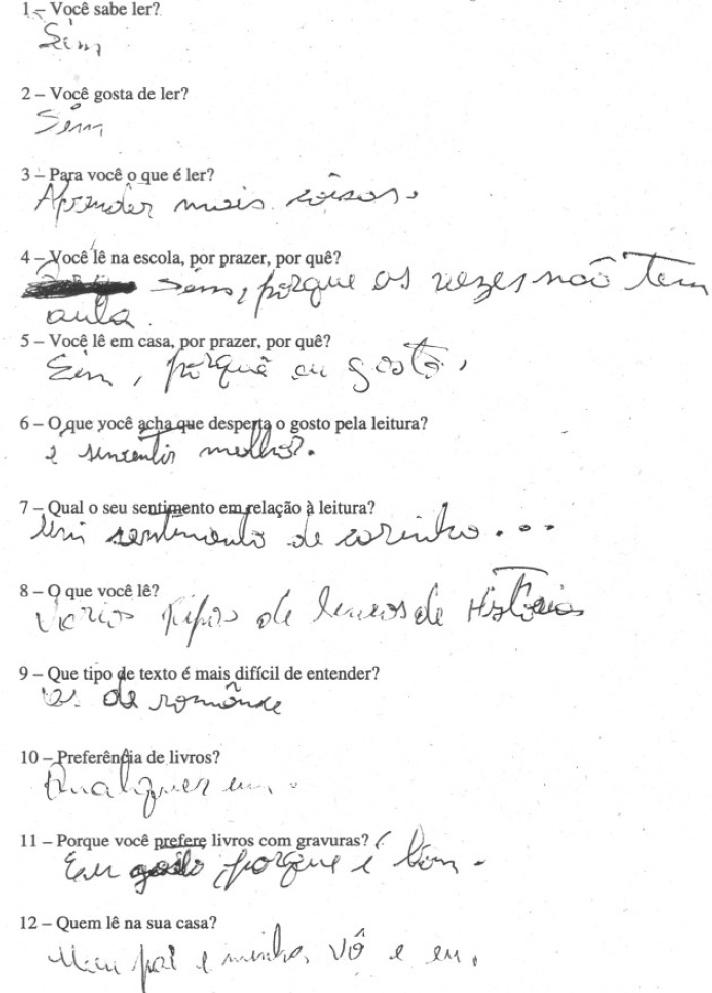 1 – Você sabe ler?
Sim
2 – Você gosta de ler?
Sim
3 – Para você o que é ler?
Aprender mais coisas.
4 – Você lê na escola, por prazer, por quê?
Sim, porque as vezes não tem
aula.
5 – Você lê em casa, por prazer, por quê?
Sim, porquê eu gosto,
6 – O que você acha que desperta o gosto pela leitura?
é melhor.
7 – Qual o seu sentimento em relação à leitura?
Um sentimento de carinho...
8 – O que você lê?
Varios tipos de de Histórias
9 – Que tipo de texto é mais difícil de entender?
os de romãnce
10 – Preferência de livros?
Qualquer um.
11 – Porque você prefere livros com gravuras?
Eu gosto, porque é bom.
12 – Quem lê na sua casa?
Meu pai e minha vô e eu.